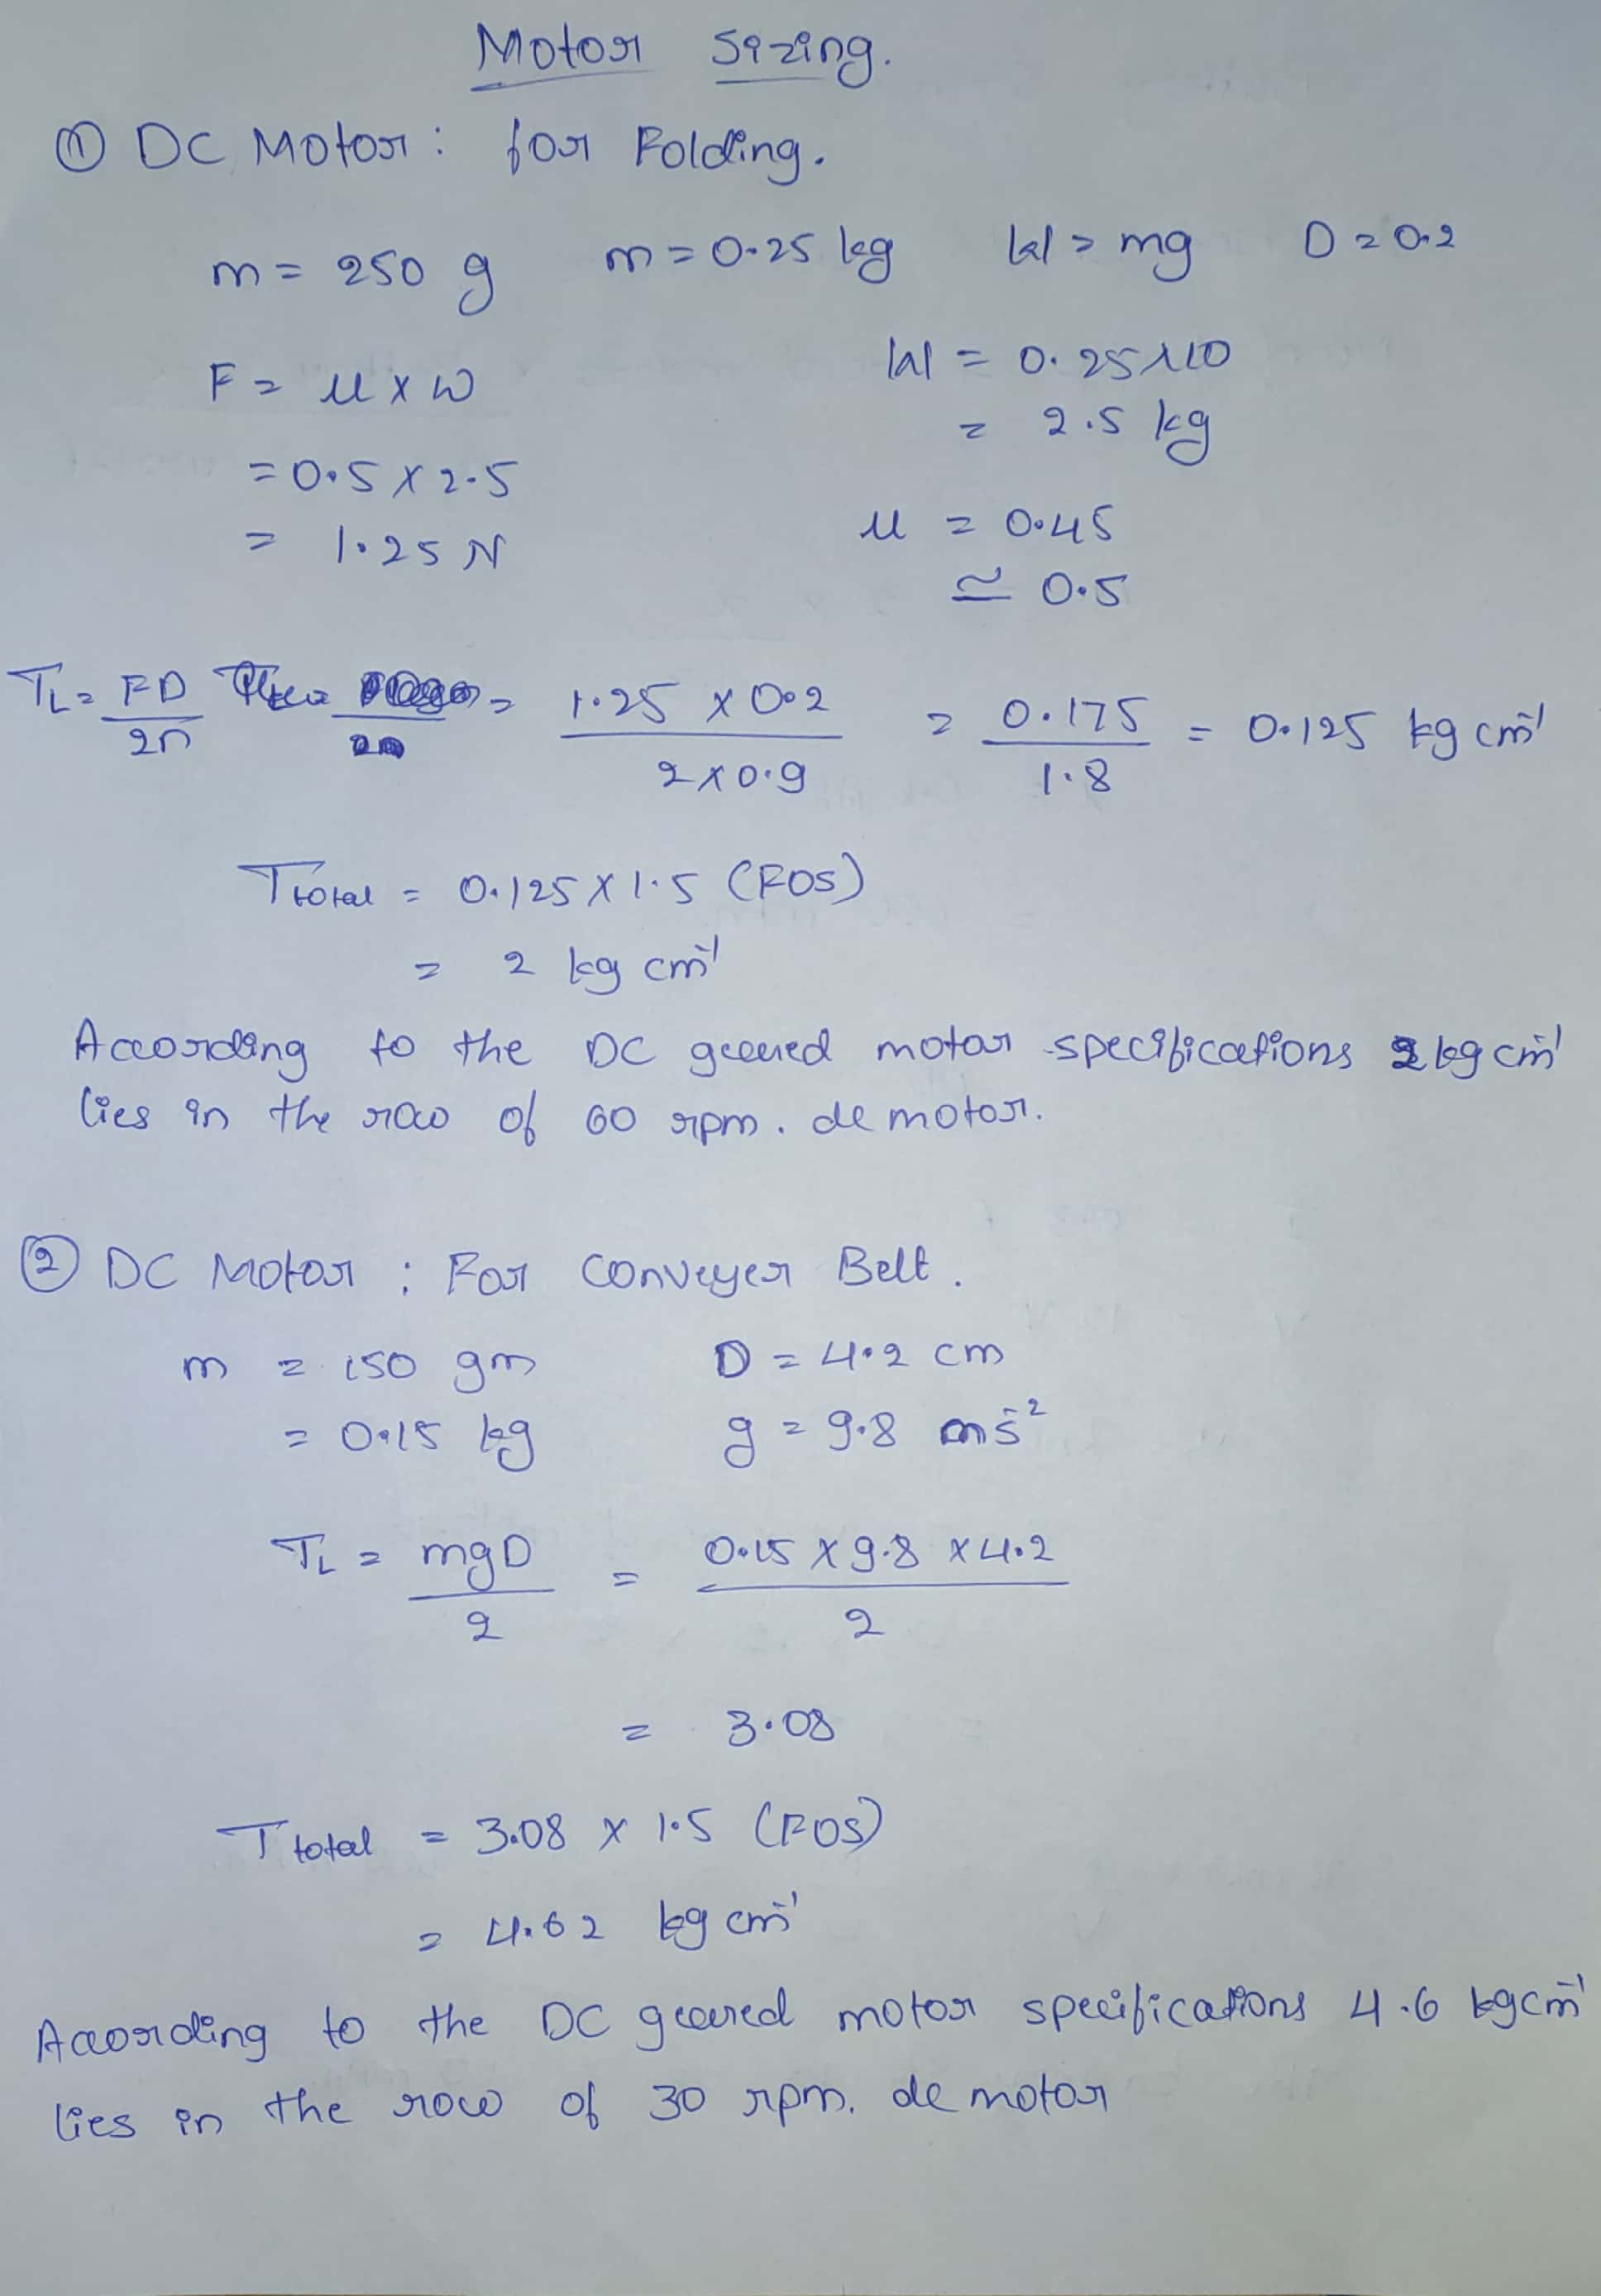 Motor Sizing.
① DC Motor: for Folding.
m = 250 g m = 0.25 kg W = mg D = 0.2
F = μ x W W = 0.25 x 10
= 0.5 x 2.5 = 2.5 kg
= 1.25 N μ = 0.45
≅ 0.5
TL = FD/2η = 1.25 x 0.2 / 2 x 0.9 = 0.175/1.8 = 0.125 kg cm⁻¹
Ttotal = 0.125 x 1.5 (FOS)
= 2 kg cm⁻¹
According to the DC geared motor specifications 2 kg cm⁻¹
lies in the row of 60 rpm. dc motor.
② DC Motor : For Conveyer Belt.
m = 150 gm D = 4.2 cm
= 0.15 kg g = 9.8 ms⁻²
TL = mgD/2 = 0.15 x 9.8 x 4.2 / 2
= 3.08
Ttotal = 3.08 x 1.5 (FOS)
= 4.62 kg cm⁻¹
According to the DC geared motor specifications 4.6 kg cm⁻¹
lies in the row of 30 rpm. dc motor